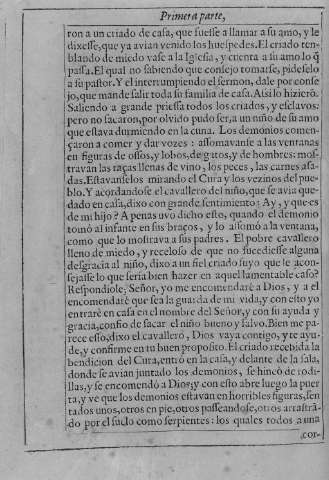 Primera parte,
ron a un criado de casa, que fuesse a llamar a su amo, y le
dixesse, que ya avian venido los huespedes. El criado ten-
blando de miedo vase a la Iglesia, y cuenta a su amo lo q̃
passa. El qual no sabiendo que consejo tomarse, pidesele
a su pastor. Y el interrumpiendo el sermon, dale por conse
jo, que mande salir toda su familia de casa. Assi lo hizierõ.
Saliendo a grande priessa todos los criados, y esclavos:
pero no sacaron, por olvido pudo ser, a un niño de su amo
que estava durmiendo en la cuna. Los demonios comen-
çaron a comer y dar vozes: assomavanse a las ventanas
en figuras de ossos, y lobos, de gatos, y de hombres: mos-
travan las taças llenas de vino, los peces, las carnes assa-
das. Estavanselos mirando el Cura y los vezinos del pue-
blo. Y acordandose el cavallero del niño, que se avia que-
dado en casa, dixo con grande sentimiento: Ay, y que es
de mi hijo? A penas uvo dicho esto, quando el demonio
tomò al infante en sus braços, y lo assomò a la ventana,
como que lo mostrava a sus padres. El pobre cavallero
lleno de miedo, y receloso de que no sucediesse alguna
desgracia al niño, dixo a un fiel criado suyo que le acon-
sejasse lo que seria bien hazer en aquel lamentable caso?
Respondiole, Señor, yo me encomendarè a Dios, y a el
encomendarè que sea la guarda de mi vida, y con esto yo
entrarè en casa en el nombre del Señor, y con su ayuda y
gracia, confio de sacar el niño bueno y salvo. Bien me pa-
rece esso, dixo el cavallero, Dios vaya contigo, y te ayu-
de, y confirme en tu buen proposito. El criado recebida la
bendicion del Cura, entrò en la casa, y delante de la sala,
donde se avian juntado los demonios, se hincò de rodi-
llas, y se encomendò a Dios; y con esto abre luego la puer
ta, y vè que los demonios estavan en horribles figuras, sen
tados unos, otros en pie, otros passeandose, otros arrastrã-
do por el suelo como serpientes: los quales todos a una
cor-